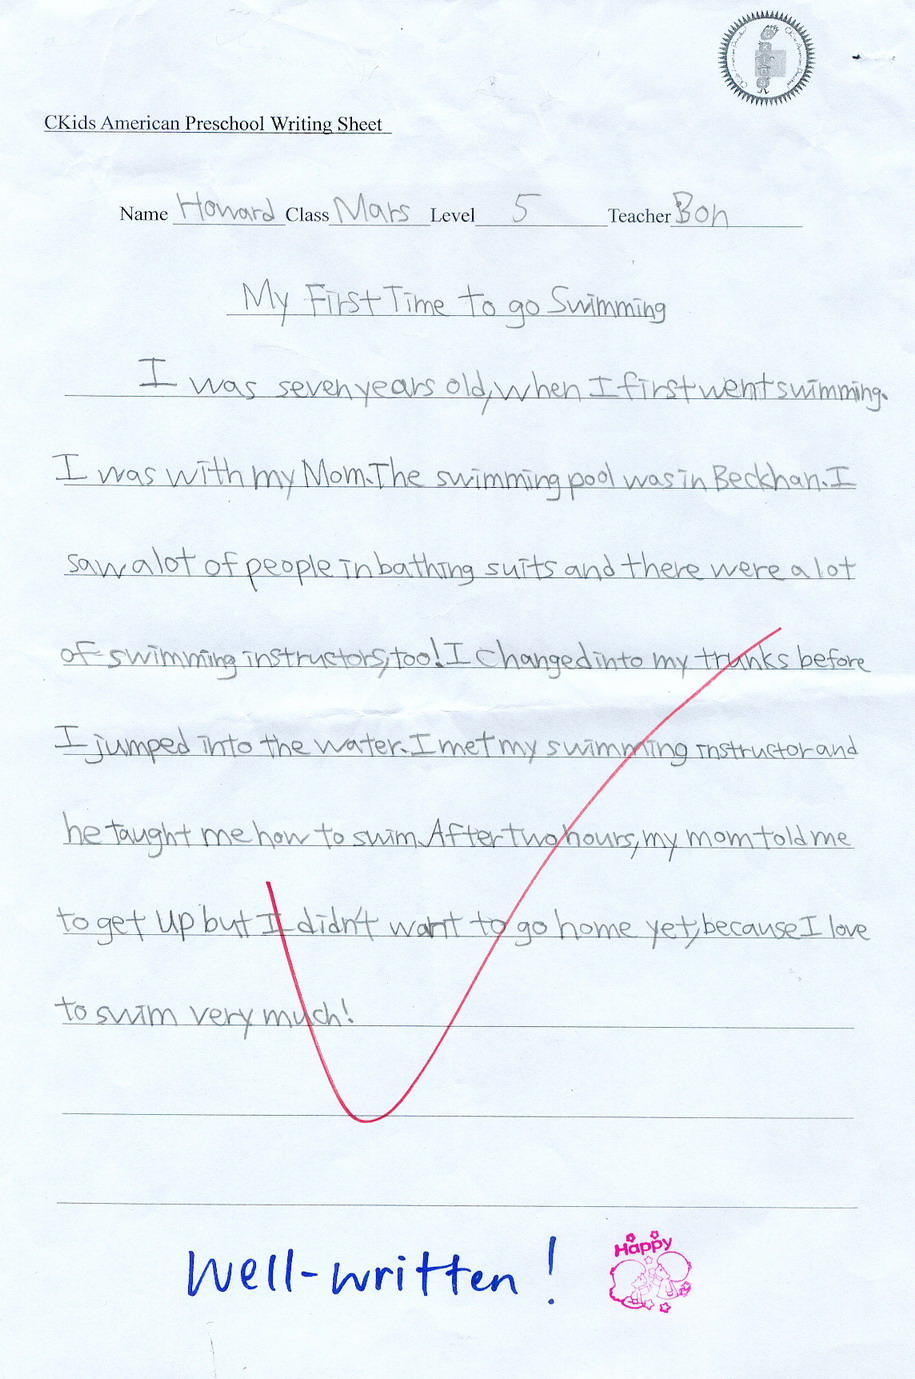 CKids American Preschool Writing Sheet
Name Howard Class Mars Level 5 Teacher Bon
My First Time to go Swimming
I was seven years old, when I first went swimming.
I was with my Mom. The swimming pool was in Beckhan. I
saw a lot of people in bathing suits and there were a lot
of swimming instructors, too! I changed into my trunks before
I jumped into the water. I met my swimming instructor and
he taught me how to swim. After two hours, my mom told me
to get up but I didn't want to go home yet, because I love
to swim very much!
Well-written!
Happy